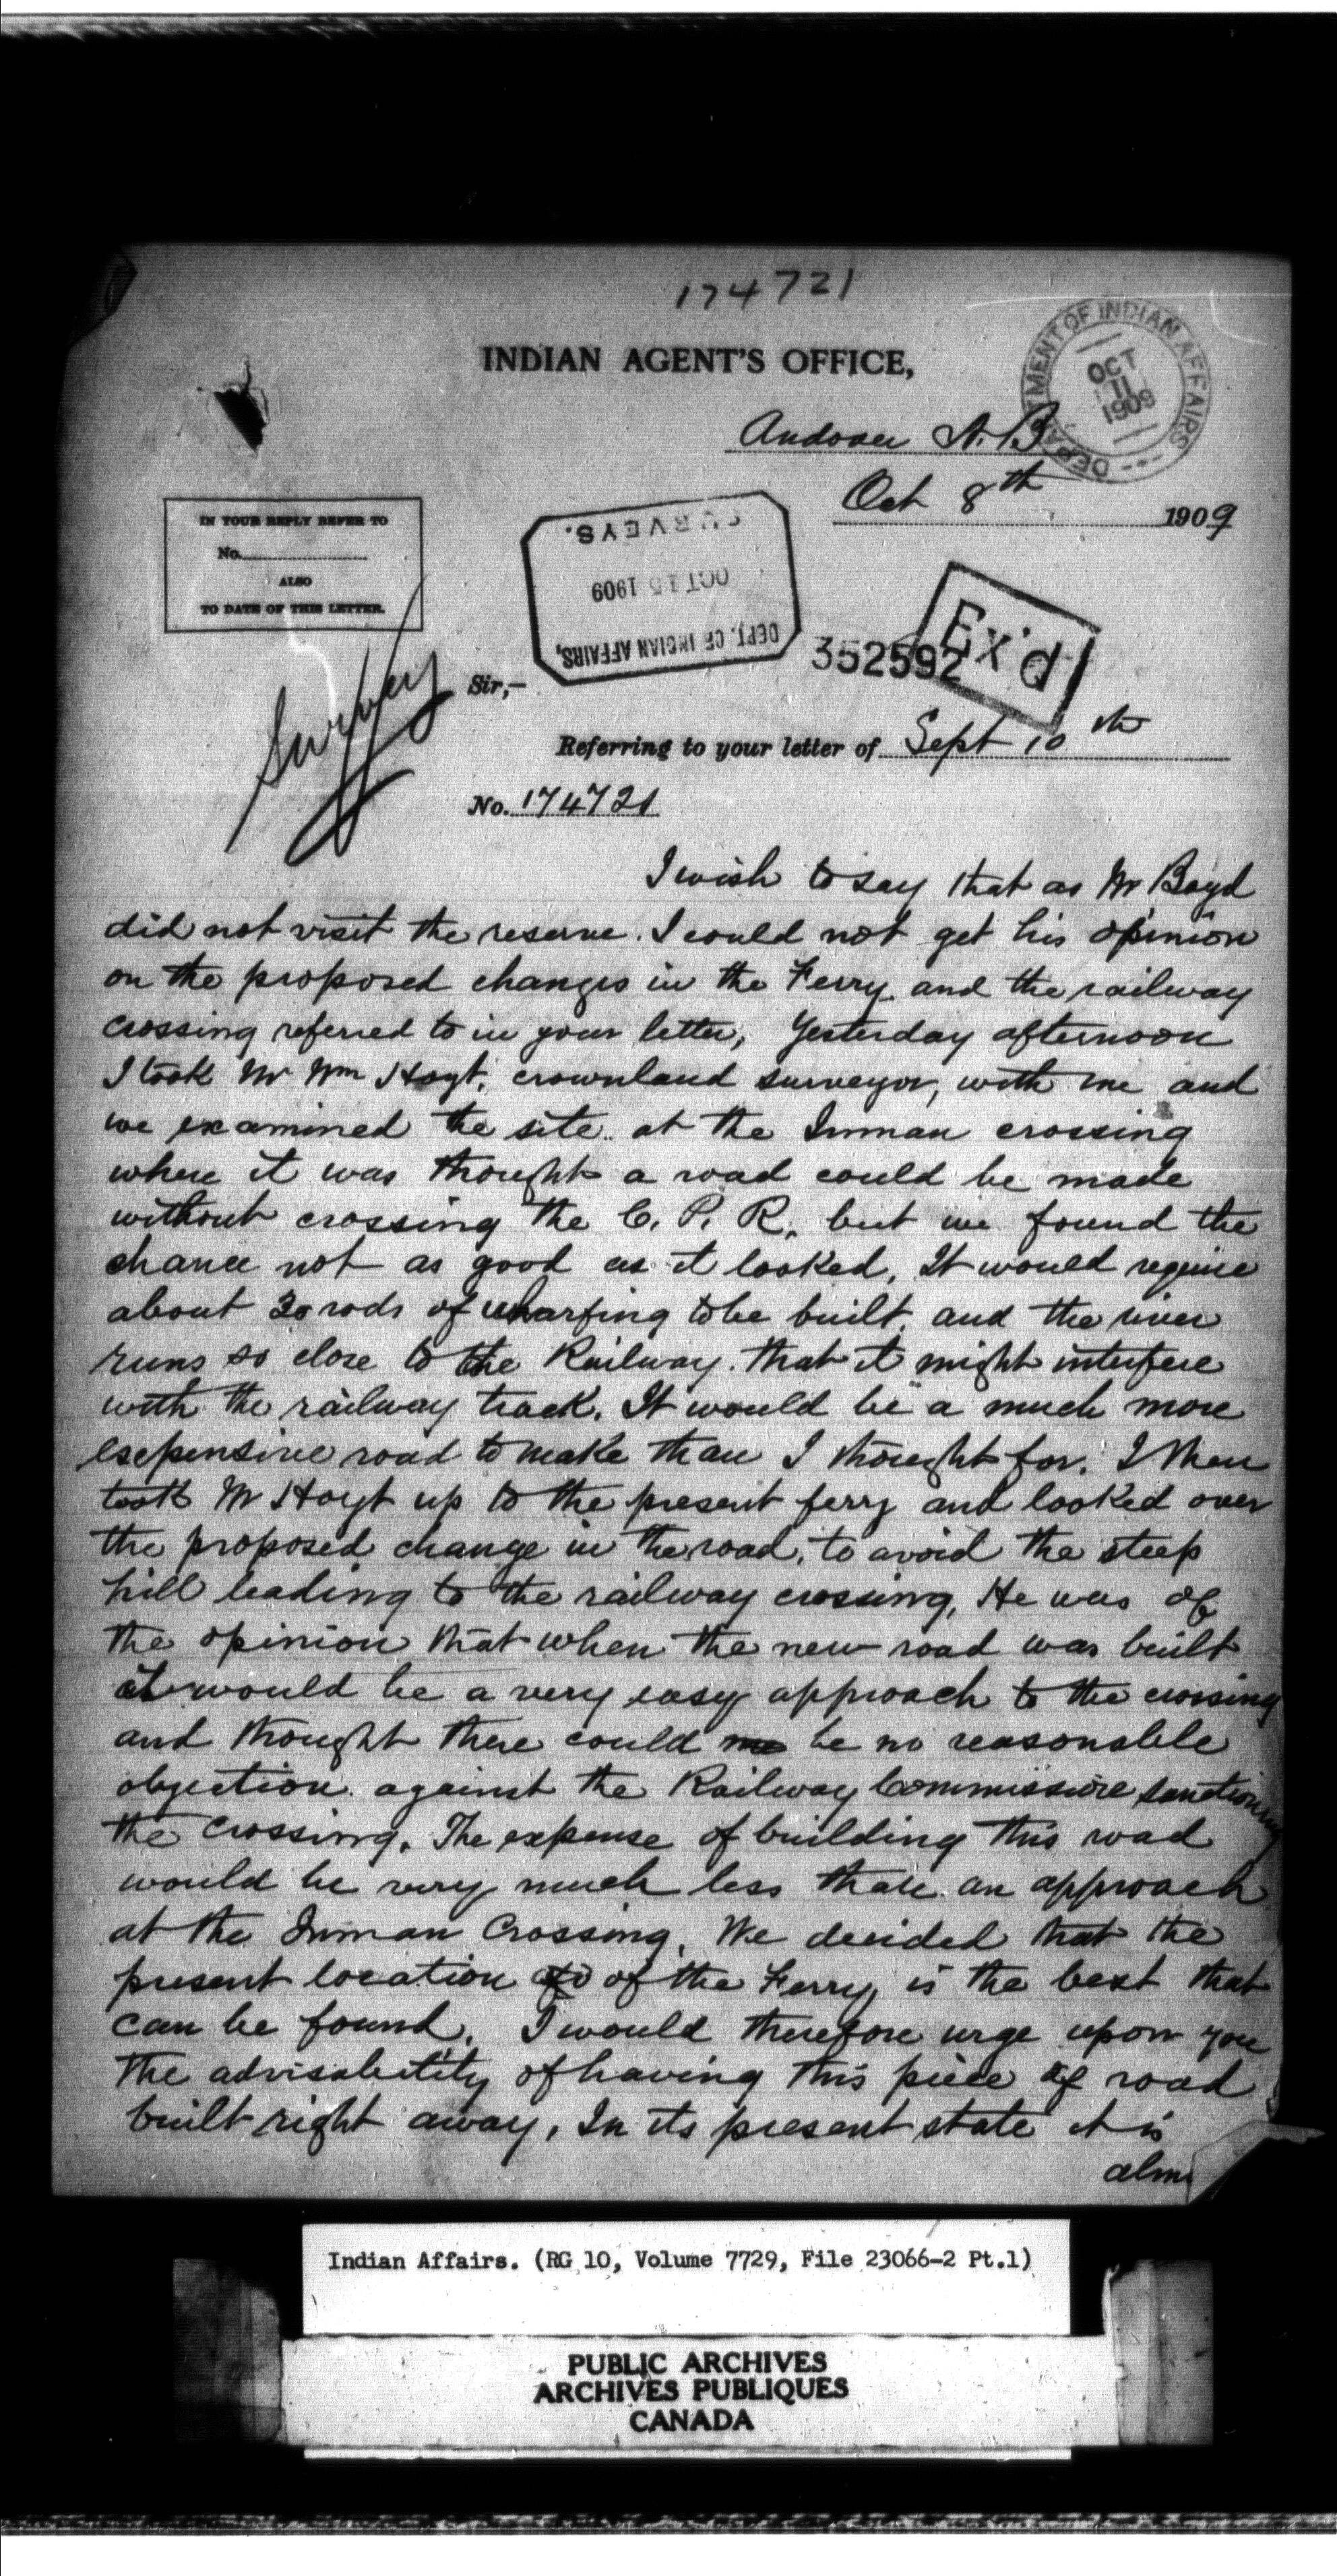 174721
INDIAN AGENT'S OFFICE,
DEPARTMENT OF INDIAN AFFAIRS
OCT
11
1909
Andover N.B
Oct 8th 1909
IN YOUR REPLY REFER TO
No.
ALSO
TO DATE OF THIS LETTER.
DEPT. OF INDIAN AFFAIRS,
OCT 15 1909
SURVEYS.
352592
Ex'd
Survey
Sir,-
Referring to your letter of Sept 10th
No. 174721
I wish to say that as Mr Boyd
did not visit the reserve. I could not get his opinion
on the proposed changes in the Ferry and the railway
crossing referred to in your letter, Yesterday afternoon
I took Mr Wm Hoyt, crownland surveyor, with me and
we examined the site at the Inman crossing
where it was thought a road could be made
without crossing the C. P. R. but we found the
chance not as good as it looked. It would require
about 30 rods of wharfing to be built, and the river
runs so close to the Railway that it might interfere
with the railway track. It would be a much more
expensive road to make than I thought for. I then
took Mr Hoyt up to the present ferry and looked over
the proposed change in the road, to avoid the steep
hill leading to the railway crossing, He was of
the opinion that when the new road was built
it would be a very easy approach to the crossing
and thought there could be no reasonable
objection against the Railway Commissioire sanctioning
the crossing. The expense of building this road
would be very much less than an approach
at the Inman Crossing. We decided that the
present location of the Ferry is the best that
can be found. I would therefore urge upon you
the advisabitity of having this piece of road
built right away, In its present state it is
alm
Indian Affairs. (RG 10, Volume 7729, File 23066-2 Pt.1)
PUBLIC ARCHIVES
ARCHIVES PUBLIQUES
CANADA